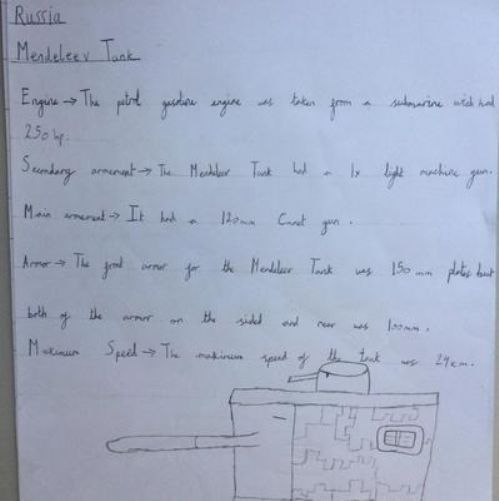 Russia
Mendeleev Tank
Engine → The petrol gasoline engine was taken from a submarine wich had
250 hp.
Secondary armement → The Mendeleev Tank had a 1x light machine gun.
Main armement → It had a 120mm Canet gun.
Armor → The front armor for the Mendeleev Tank was 150 mm plates but
both of the armor on the sided and rear was 100mm.
Maximum Speed → The maximum speed of the tank was 24km.